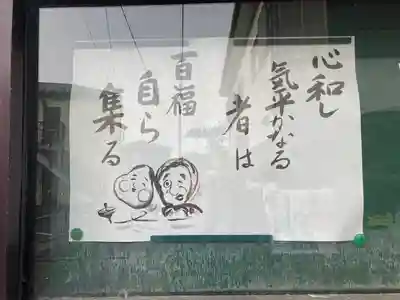 心和し
氣平かなる
者は
百福
自ら
集る